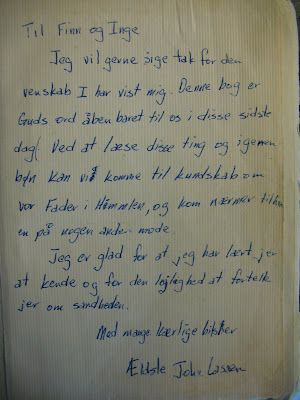 Til Finn og Inge
Jeg vil gerne sige tak for den
venskab I har vist mig. Denne bog er
Guds ord åbenbaret til os i disse sidste
dag. Ved at læse disse ting og igennem
bøn kan vi komme til kundskab om
vor Fader i Himmelen, og kom nærmer til ham
en på nogen anden mode.
Jeg er glad for at jeg har lært jer
at kende og for den lejlighed at fortelle
jer om sandheden.
Med mange kærlige
Ældste John Lassen